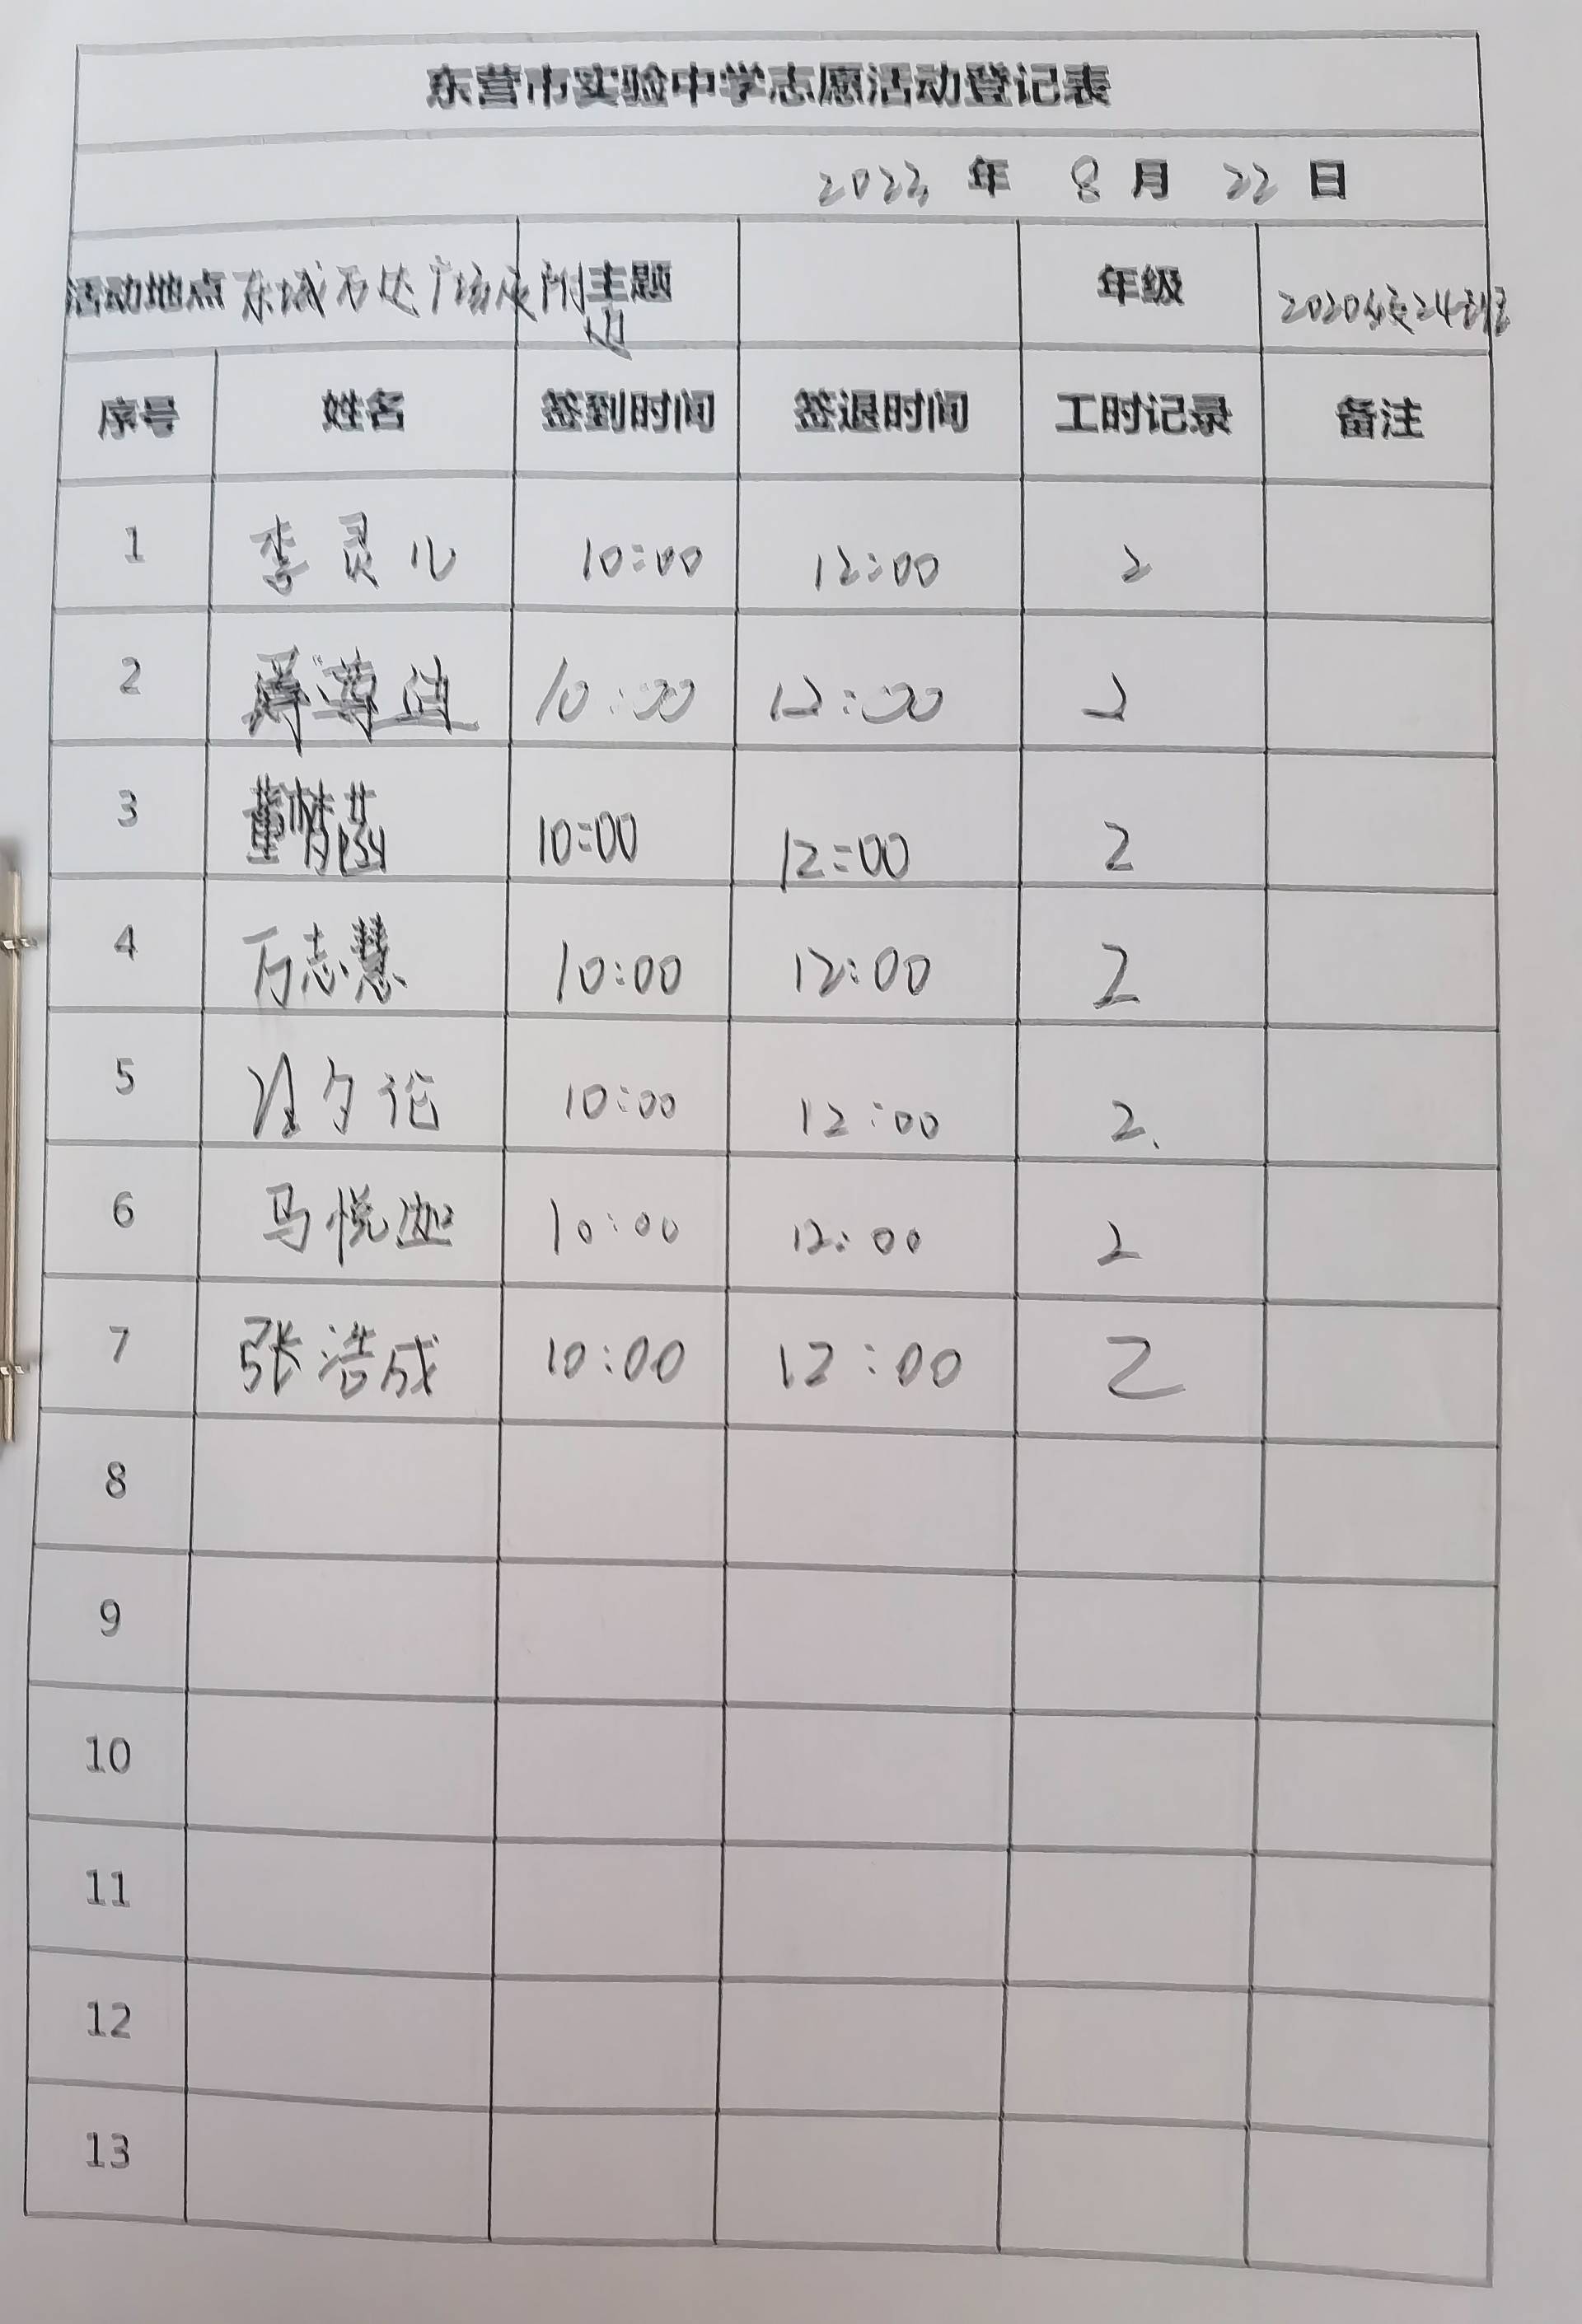 东营市实验中学志愿活动登记表
2022 年 8 月 22 日
活动地点 东城万达广场 附近 主题 年级 2020级24班
序号 姓名 签到时间 签退时间 工时记录 备注
1 李灵儿 10:00 12:00 2
2 10:00 12:00 2
3 董 10:00 12:00 2
4 万志慧 10:00 12:00 2
5 10:00 12:00 2.
6 马悦迦 10:00 12:00 2
7 张浩成 10:00 12:00 2
8
9
10
11
12
13